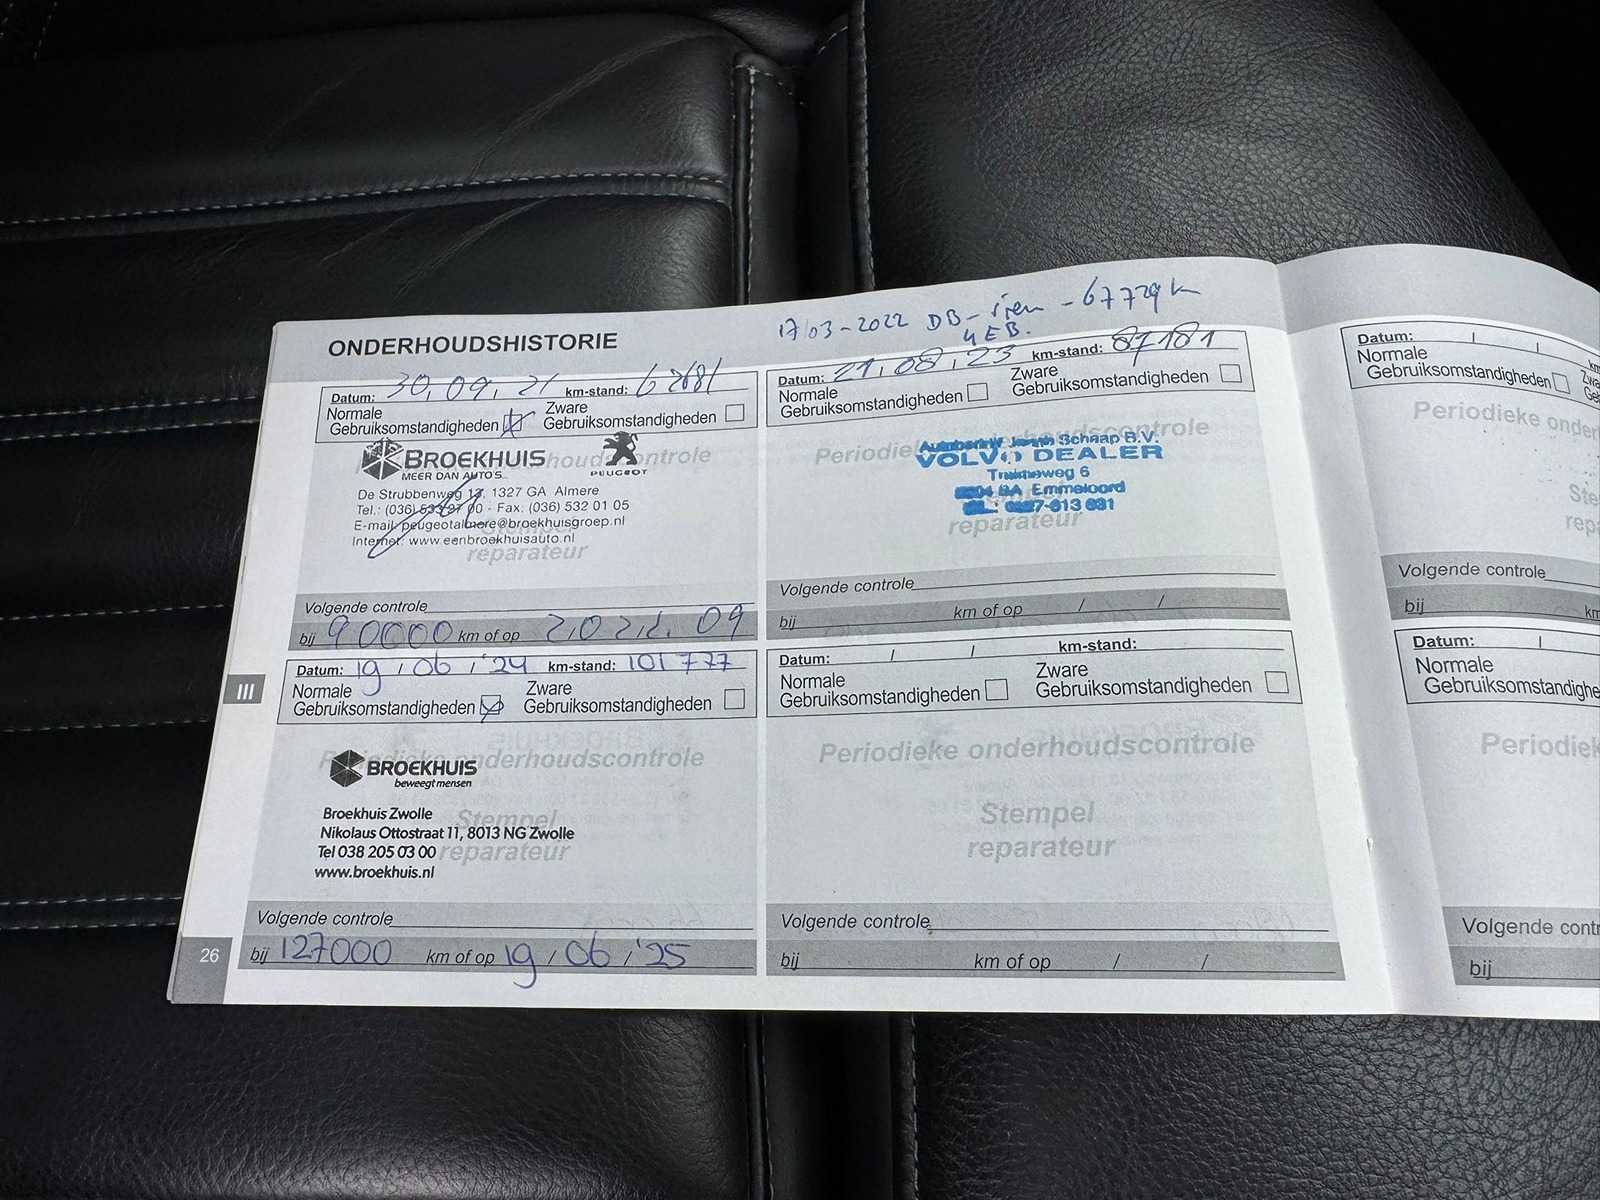 ONDERHOUDSHISTORIE
17/03-2022 DB-riem - 67729 k
Datum: 30, 09, 21 km-stand: 62681
Normale Zware
Gebruiksomstandigheden Gebruiksomstandigheden
BROEKHUIS
MEER DAN AUTO'S...
PEUGEOT
Periodieke onderhoudscontrole
De Strubbenweg 13, 1327 GA Almere
Tel.: (036) 533 27 00 - Fax: (036) 532 01 05
E-mail: peugeotalmere@broekhuisgroep.nl
Internet: www.eenbroekhuisauto.nl
Stempel
reparateur
Volgende controle
bij 90000 km of op 2022. 09
Datum: 21, 08, 23 km-stand: 87181
Normale Zware
Gebruiksomstandigheden Gebruiksomstandigheden
Periodieke onderhoudscontrole
Schaap B.V.
VOLVO DEALER
6
BA Emmeloord
reparateur
Volgende controle
bij km of op / /
Datum: 19 / 06 / '24 km-stand: 101777
Normale Zware
Gebruiksomstandigheden Gebruiksomstandigheden
Periodieke onderhoudscontrole
BROEKHUIS
beweegt mensen
Broekhuis Zwolle
Stempel
Nikolaus Ottostraat 11, 8013 NG Zwolle
Tel 038 205 03 00
reparateur
www.broekhuis.nl
Volgende controle
bij 127000 km of op 19 / 06 / '25
Datum: / / km-stand:
Normale Zware
Gebruiksomstandigheden Gebruiksomstandigheden
Periodieke onderhoudscontrole
Stempel
reparateur
Volgende controle
bij km of op / /
III
26
Datum: / /
Normale
Gebruiksomstandigheden
Periodieke
Volgende controle
bij
Datum: /
Normale
Volgende
bij